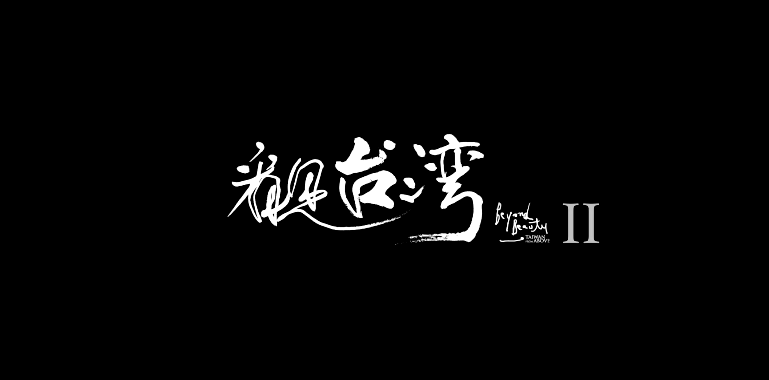 看見台湾
Beyond
Beauty
TAIWAN
from ABOVE
II